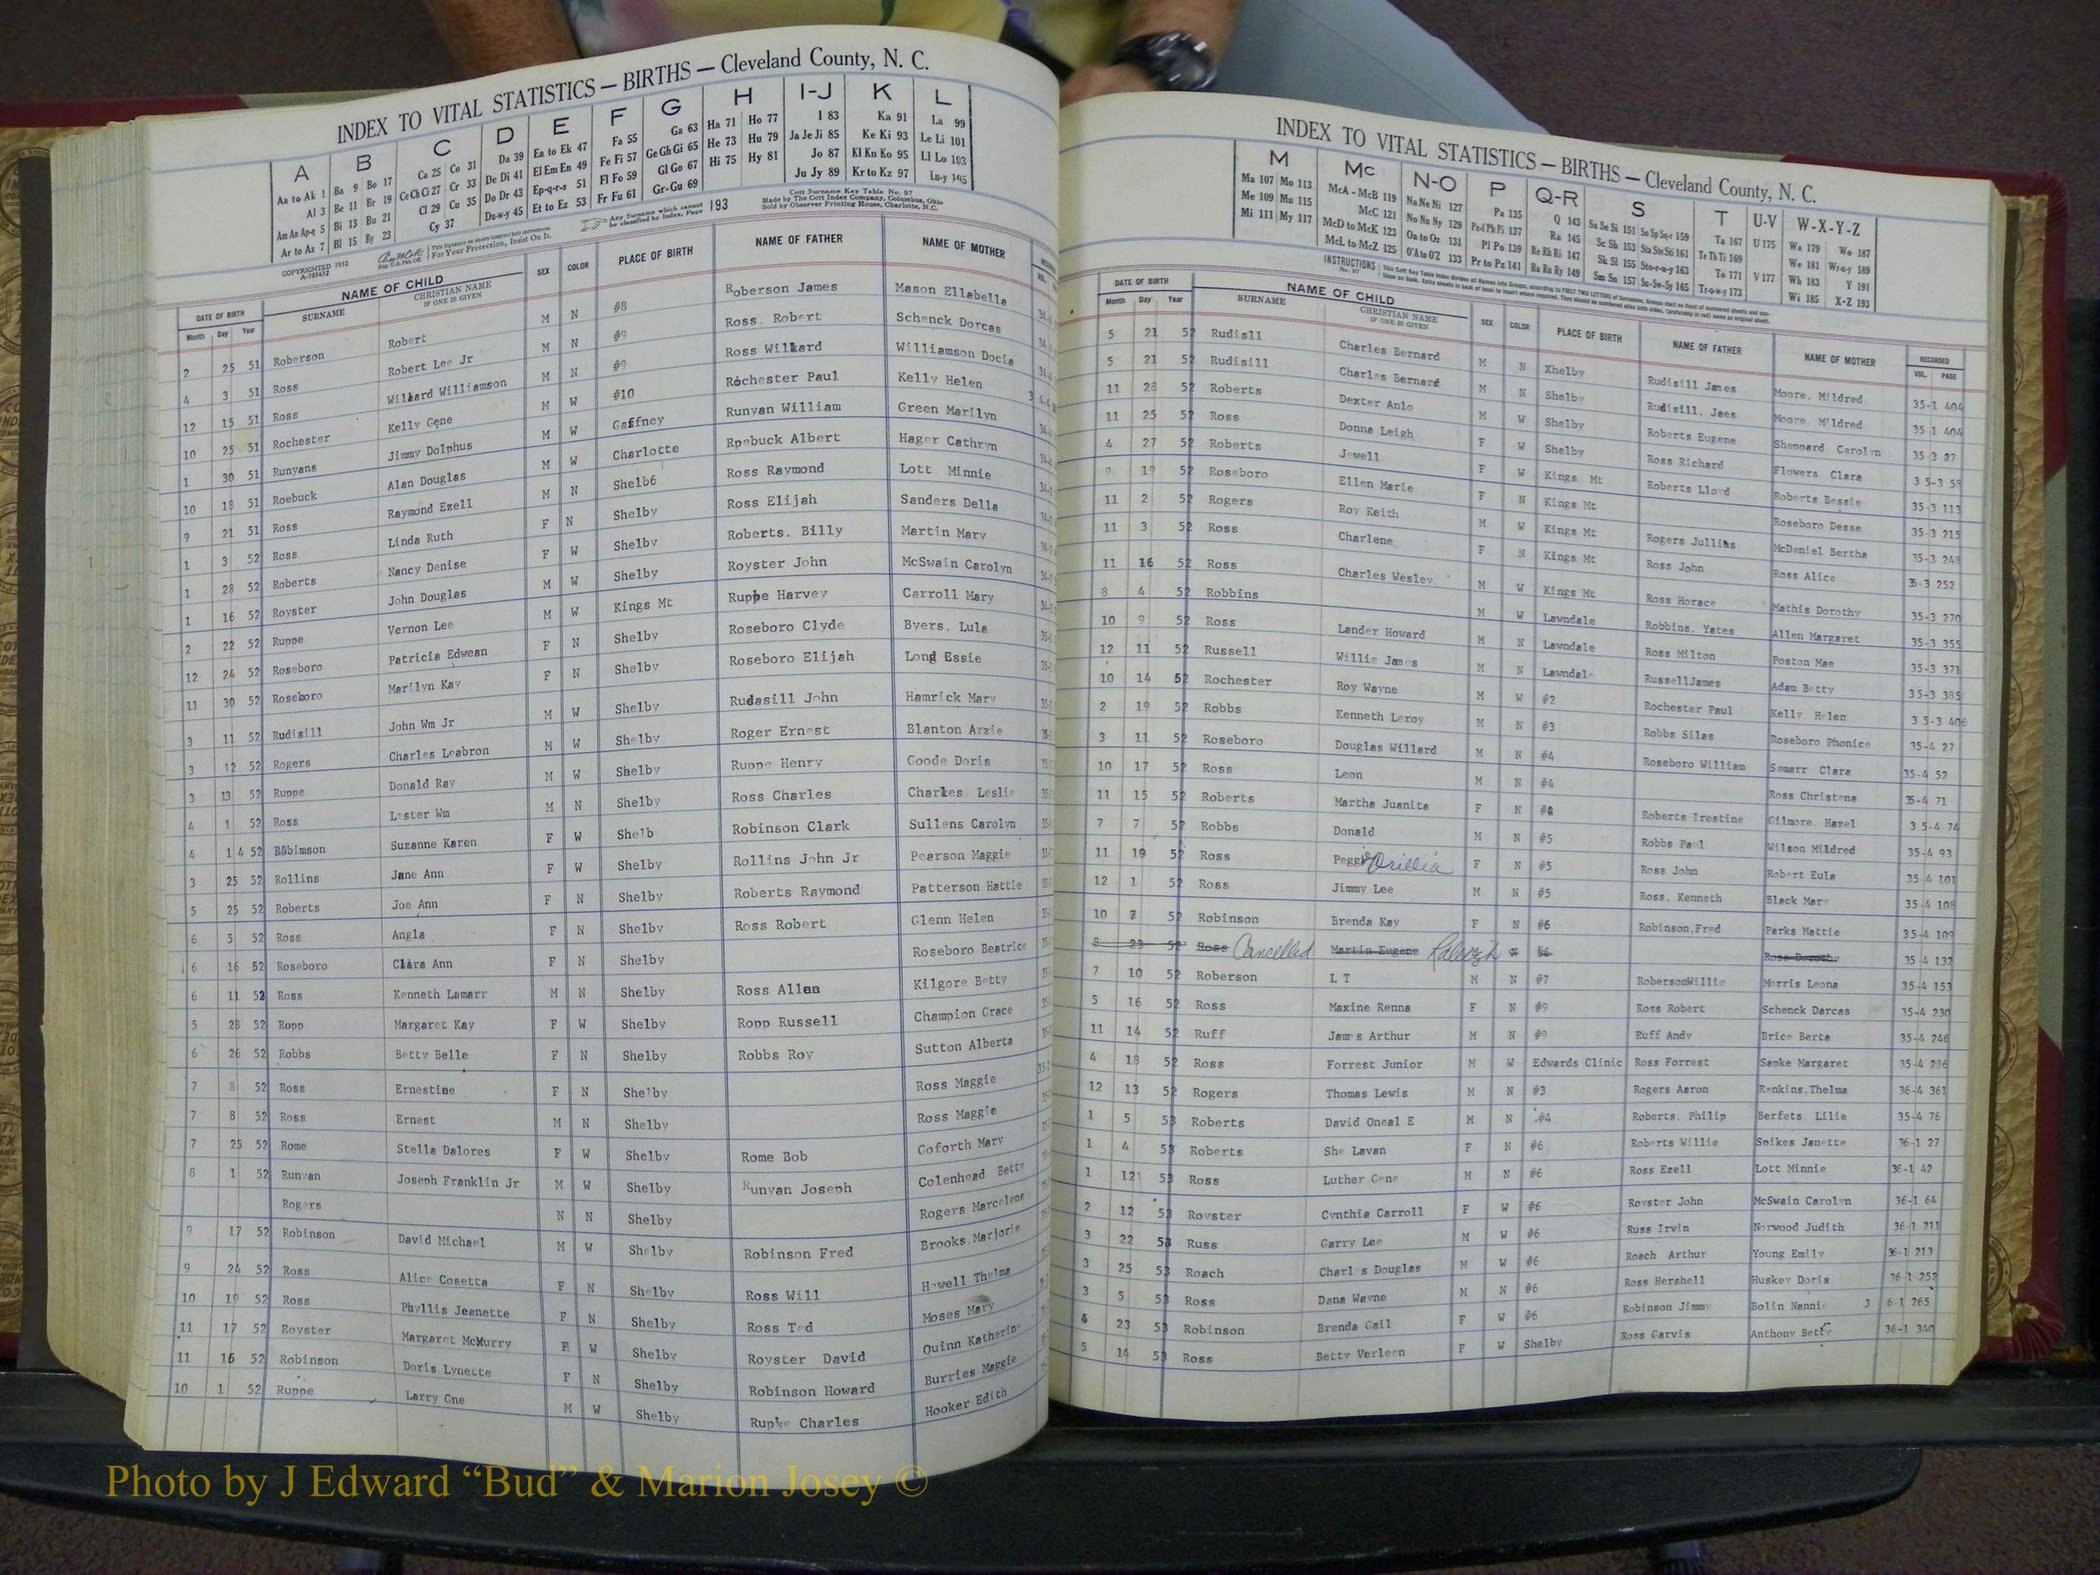 INDEX TO VITAL STATISTICS — BIRTHS — Cleveland County, N. C.
A B C D E F G H I-J K L
Aa to Ak 1 Ba 9 Bo 17 Ca 25 Co 31 Da 39 Ea to Ek 47 Fa 55 Ga 63 Ha 71 Ho 77 I 83 Ka 91 La 99
Al 3 Be 11 Br 19 Ce Ch Ci 27 Cr 33 De Di 41 El Em En 49 Fe Fi 57 Ge Gh Gi 65 He 73 Hu 79 Ja Je Ji 85 Ke Ki 93 Le Li 101
Am An Ap-q 5 Bi 13 Bu 21 Cl 29 Cu 35 Do Dr 43 Ep-q-r-s 51 Fl Fo 59 Gl Go 67 Hi 75 Hy 81 Jo 87 Kl Kn Ko 95 Ll Lo 103
Ar to Az 7 Bl 15 By 23 Cy 37 Du-w-y 45 Et to Ez 53 Fr Fu 61 Gr-Gu 69 Ju Jy 89 Kr to Kz 97 Lu-y 105
COPYRIGHTED 1932 This signature on sheet insures their correctness. For Your Protection, Insist On It. Any Surname which cannot be classified by Index, Page 193 Cott Surname Key Table No. 97
Made by The Cott Index Company, Columbus, Ohio
Sold by Observer Printing House, Charlotte, N.C.
DATE OF BIRTH NAME OF CHILD SEX COLOR PLACE OF BIRTH NAME OF FATHER NAME OF MOTHER
Month Day Year SURNAME CHRISTIAN NAME IF ONE IS GIVEN
2 25 51 Roberson Robert M N #8 Roberson James Mason Ellabella
4 3 51 Ross Robert Lee Jr M N #9 Ross Robert Schenck Dorcas
12 15 51 Ross Willard Williamson M N #9 Ross Willard Williamson Docia
10 25 51 Rochester Kelly Gene M W #10 Rochester Paul Kelly Helen
1 30 51 Runyans Jimmy Dolphus M W Gaffney Runyan William Green Marilyn
10 18 51 Roebuck Alan Douglas M W Charlotte Rpebuck Albert Hager Cathryn
9 21 51 Ross Raymond Ezell M N Shelb6 Ross Raymond Lott Minnie
1 3 52 Ross Linda Ruth F N Shelby Ross Elijah Sanders Della
1 28 52 Roberts Nancy Denise F W Shelby Roberts. Billy Martin Mary
1 16 52 Royster John Douglas M W Shelby Royster John McSwain Carolyn
2 22 52 Ruppe Vernon Lee M W Kings Mt Ruppe Harvey Carroll Mary
12 24 52 Roseboro Patricia Edwean F N Shelby Roseboro Clyde Byers. Lula
11 30 52 Roseboro Marilyn Kay F N Shelby Roseboro Elijah Long Essie
3 11 52 Rudisill John Wm Jr M W Shelby Rudasill John Hamrick Mary
3 12 52 Rogers Charles Leabron M W Shelby Roger Ernest Blanton Arzie
3 13 52 Ruppe Donald Ray M W Shelby Ruppe Henry Goode Doris
4 1 52 Ross Lester Wm M N Shelby Ross Charles Charles Leslie
4 14 52 Robimson Suzanne Karen F W Shelb Robinson Clark Sullens Carolyn
3 25 52 Rollins Jane Ann F W Shelby Rollins John Jr Pearson Maggie
5 25 52 Roberts Joe Ann F N Shelby Roberts Raymond Patterson Hattie
6 5 52 Ross Angla F N Shelby Ross Robert Glenn Helen
6 16 52 Roseboro Clara Ann F N Shelby Roseboro Beatrice
6 11 52 Ross Kenneth Lamarr M N Shelby Ross Allen Kilgore Betty
5 28 52 Ropp Margaret Kay F W Shelby Ropp Russell Champion Grace
6 26 52 Robbs Betty Belle F N Shelby Robbs Roy Sutton Alberta
7 8 52 Ross Ernestine F N Shelby Ross Maggie
7 8 52 Ross Ernest M N Shelby Ross Maggie
7 25 52 Rome Stella Dalores F W Shelby Rome Bob Goforth Mary
8 1 52 Runyan Joseph Franklin Jr M W Shelby Runyan Joseph Colenhead Betty
Rogers N N Shelby Rogers Marcelene
9 17 52 Robinson David Michael M W Shelby Robinson Fred Brooks.Marjorie
9 24 52 Ross Alice Cosetta F N Shelby Ross Will Howell Thelma
10 19 52 Ross Phyllis Jeanette F N Shelby Ross Ted Moses Mary
11 17 52 Royster Margaret McMurry F W Shelby Royster David Quinn Katherine
11 16 52 Robinson Doris Lynette F N Shelby Robinson Howard Burries Maggie
10 1 52 Ruppe Larry Gne M W Shelby Rupke Charles Hooker Edith
INDEX TO VITAL STATISTICS — BIRTHS — Cleveland County, N. C.
M Mc N-O P Q-R S T U-V W-X-Y-Z
Ma 107 Mo 113 McA - McB 119 Na Ne Ni 127 Pa 135 Q 143 Sa Se Si 151 So Sp Sq-r 159 Ta 167 U 175 Wa 179 Wo 187
Me 109 Mu 115 McC 121 No Nu Ny 129 Pe-f Ph Pi 137 Ra 145 Sc Sh 153 Sta Ste Sti 161 Te Th Ti 169 We 181 Wr-u-y 189
Mi 111 My 117 McD to McK 123 Oa to Oz 131 Pl Po 139 Re Rh Ri 147 Sk Sl 155 Sto-r-u-y 163 To 171 V 177 Wh 183 Y 191
McL to McZ 125 O'A to O'Z 133 Pr to Pz 141 Ro Ru Ry 149 Sm Sn 157 Su-Sw-Sy 165 Tr-u-w-y 173 Wi 185 X-Z 193
INSTRUCTIONS No. 97
DATE OF BIRTH NAME OF CHILD SEX COLOR PLACE OF BIRTH NAME OF FATHER NAME OF MOTHER RECORDED
Month Day Year SURNAME CHRISTIAN NAME IF ONE IS GIVEN VOL. PAGE
5 21 52 Rudisll Charles Bernard M N Xhelby Rudisill James Moore, Mildred 35-1 404
5 21 52 Rudisill Charles Bernard M N Shelby Rudisill, Jaes Moore, Mildred 35-1 404
11 28 52 Roberts Dexter Anlo M W Shelby Roberts Eugene Sheppard Carolyn 35-3 27
11 25 52 Ross Donna Leigh F W Shelby Ross Richard Flowers Clara 3 5-3 58
4 27 52 Roberts Jewell F W Kings Mt Roberts Lloyd Roberts Bessie 35-3 113
19 52 Roseboro Ellen Marie F N Kings Mt Roseboro Desse 35-3 215
11 2 52 Rogers Roy Keith M W Kings Mt Rogers Jullias McDaniel Bertha 35-3 248
11 3 52 Ross Charlene F N Kings Mt Ross John Ross Alice 35-3 252
11 16 52 Ross Charles Wesley M W Kings Mt Ross Horace Mathis Dorothy 35-3 270
8 4 52 Robbins M W Lawndale Robbins, Yates Allen Margaret 35-3 355
10 9 52 Ross Lander Howard M N Lawndale Ross Milton Poston Mae 35-3 371
12 11 52 Russell Willie James M N Lawndale RussellJames Adam Betty 35-3 385
10 14 52 Rochester Roy Wayne M W #2 Rochester Paul Kelly. Helen 3 5-3 406
2 19 52 Robbs Kenneth Leroy M N #3 Robbs Silas Roseboro Phonice 35-4 27
3 11 52 Roseboro Douglas Willard M N #4 Roseboro William Samarr Clara 35-4 52
10 17 52 Ross Leon M N #4 Ross Christena 35-4 71
11 15 52 Roberts Martha Juanita F N Roberts Irestine Gilmore. Hazel 3 5-4 74
7 7 52 Robbs Donald M N #5 Robbs Paul Wilson Mildred 35-4 93
11 19 52 Ross Peggy Drillia F N #5 Ross John Robert Eula 35-4 101
12 1 52 Ross Jimmy Lee M N #5 Ross. Kenneth Black Mary 35-4 108
10 7 52 Robinson Brenda Kay F N #6 Robinson.Fred Parks Mattie 35-4 109
8 23 52 Ross Cancelled Martin Eugene Raleigh #6 Ross Dorothy 35 4 132
7 10 52 Roberson L T M N #7 RobersonWillie Morris Leona 35-4 153
5 16 52 Ross Maxine Renna F N #9 Ross Robert Schenck Darcas 35-4 230
11 14 52 Ruff Jams Arthur M N #9 Ruff Andy Brice Berta 35-4 246
4 18 52 Ross Forrest Junior M W Edwards Clinic Ross Forrest Sapke Margaret 35-4 286
12 13 52 Rogers Thomas Lewis M N #3 Rogers Aaron Rankins.Thelma 36-4 361
1 5 53 Roberts David Oneal E M N #4 Roberts. Philip Berfets Lilie 35-4 76
1 4 53 Roberts She Lavan F N #6 Roberts Willie Spikes Janette 36-1 27
1 12 53 Ross Luther Gene M N #6 Ross Ezell Lott Minnie 36-1 42
2 12 53 Royster Cynthia Carroll F W #6 Royster John McSwain Carolyn 36-1 64
3 22 53 Russ Garry Lee M W #6 Russ Irvin Norwood Judith 36-1 211
3 25 53 Roach Charl s Douglas M W #6 Roach Arthur Young Emily 36-1 213
3 5 53 Ross Dana Wayne M N #6 Ross Hershell Huskey Doris 36 1 252
23 53 Robinson Brenda Gail F W #6 Robinson Jimmy Bolin Nannie 3 6-1 265
5 14 53 Ross Betty Verleen F W Shelby Ross Garvis Anthony Betty 36-1 340
Photo by J Edward “Bud” & Marion Josey ©